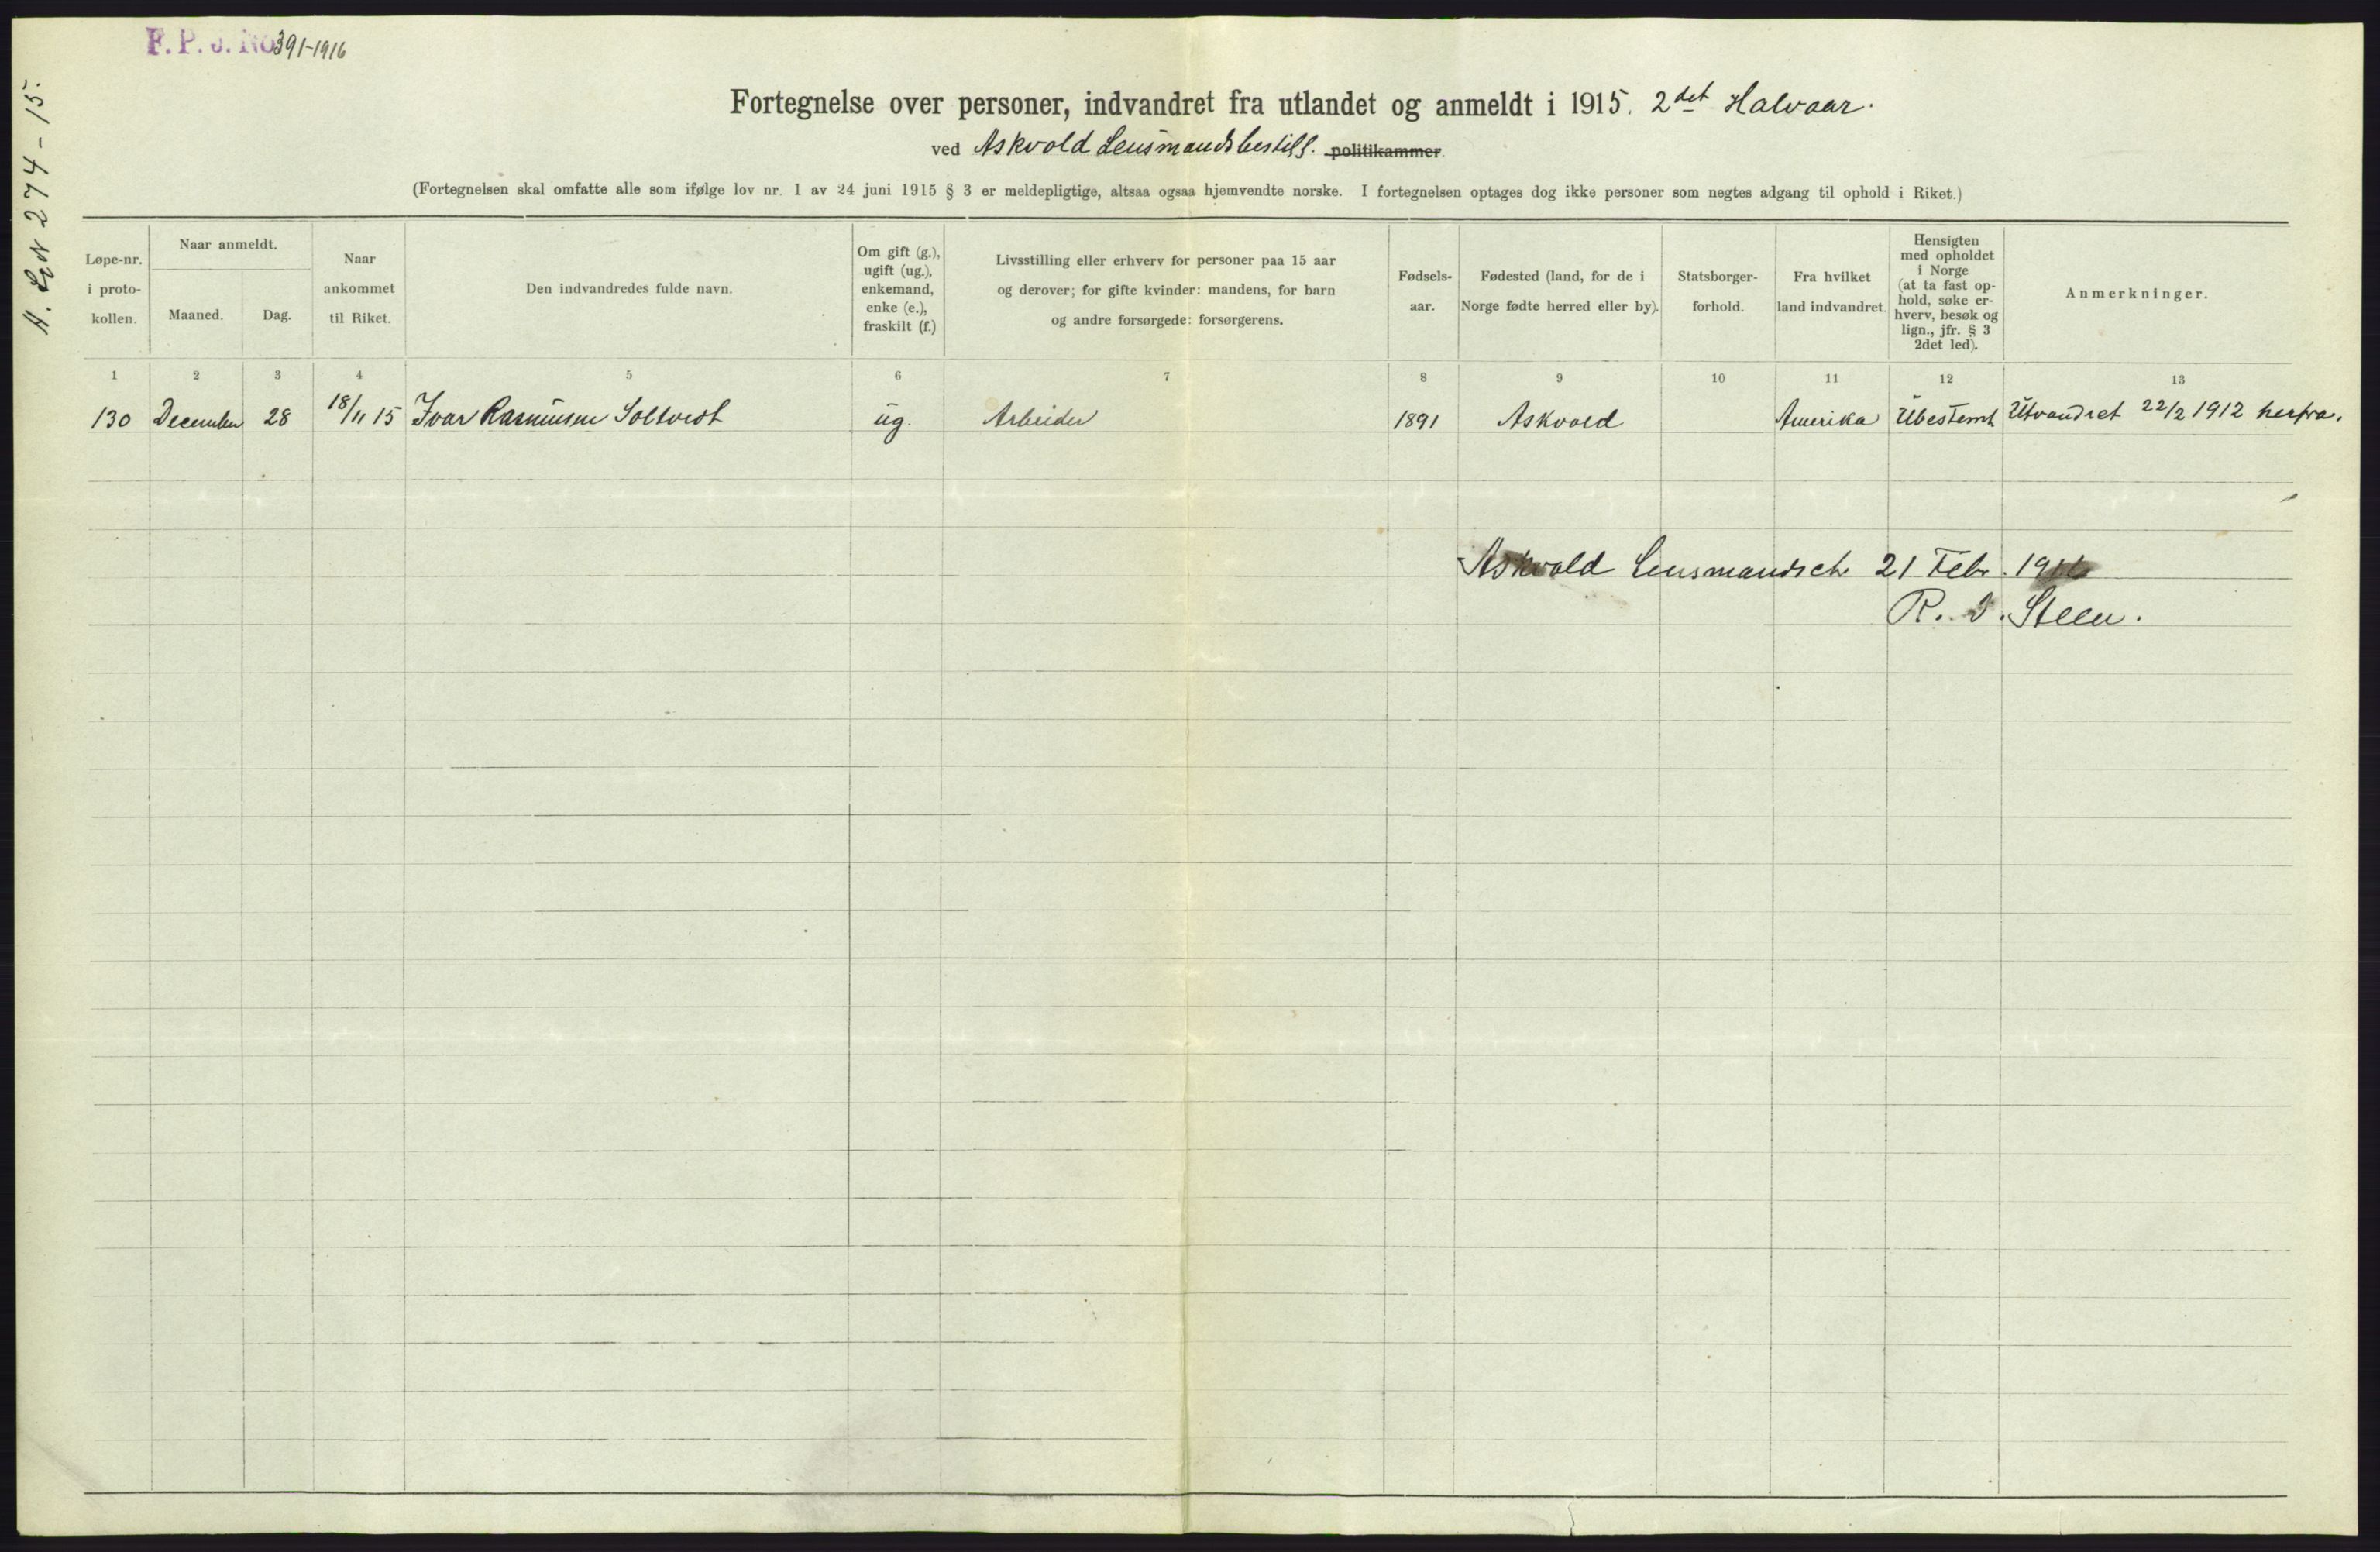 F. P. J. No 391-1916
274-15.
Fortegnelse over personer, indvandret fra utlandet og anmeldt i 1915. 2det Halvaar.
ved Askvold Lensmandsbestill. politikammer
(Fortegnelsen skal omfatte alle som ifølge lov nr. 1 av 24 juni 1915 § 3 er meldepligtige, altsaa ogsaa hjemvendte norske. I fortegnelsen optages dog ikke personer som negtes adgang til ophold i Riket.)
Løpe-nr.
i proto-
kollen.
Naar anmeldt.
Maaned.
Dag.
Naar
ankommet
til Riket.
Den indvandredes fulde navn.
Om gift (g.),
ugift (ug.),
enkemand,
enke (e.),
fraskilt (f.)
Livsstilling eller erhverv for personer paa 15 aar
og derover; for gifte kvinder: mandens, for barn
og andre forsørgede: forsørgerens.
Fødsels-
aar.
Fødested (land, for de i
Norge fødte herred eller by).
Statsborger-
forhold.
Fra hvilket
land indvandret.
Hensigten
med opholdet
i Norge
(at ta fast op-
hold, søke er-
hverv, besøk og
lign., jfr. § 3
2det led).
Anmerkninger.
1 2 3 4 5 6 7 8 9 10 11 12 13
130 December 28 18/11 15 Ivar Rasmusen Soltvedt ug. Arbeider 1891 Askvold Amerika Ubestemt Utvandret 22/2 1912 herfra.
Askvold Lensmandsch. 21 Febr. 1916
R. J. Steen.